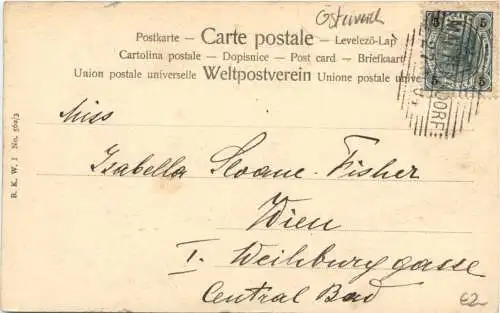 Österreich
Postkarte — Carte postale — Levelező-Lap
Cartolina postale — Dopisnice — Post card — Briefkaart
Union postale universelle Weltpostverein Unione postale unive
5 5
5 5
B. K. W. I No. 562/3
Miss
Isabella Sloane-Fisher
Wien
I. Weihburggasse
Central Bad
€2-